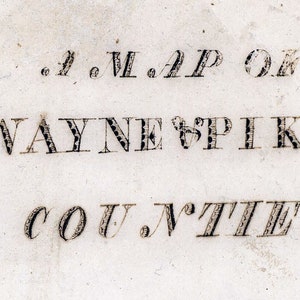 A MAP OF
WAYNE & PIK
COUNTIE